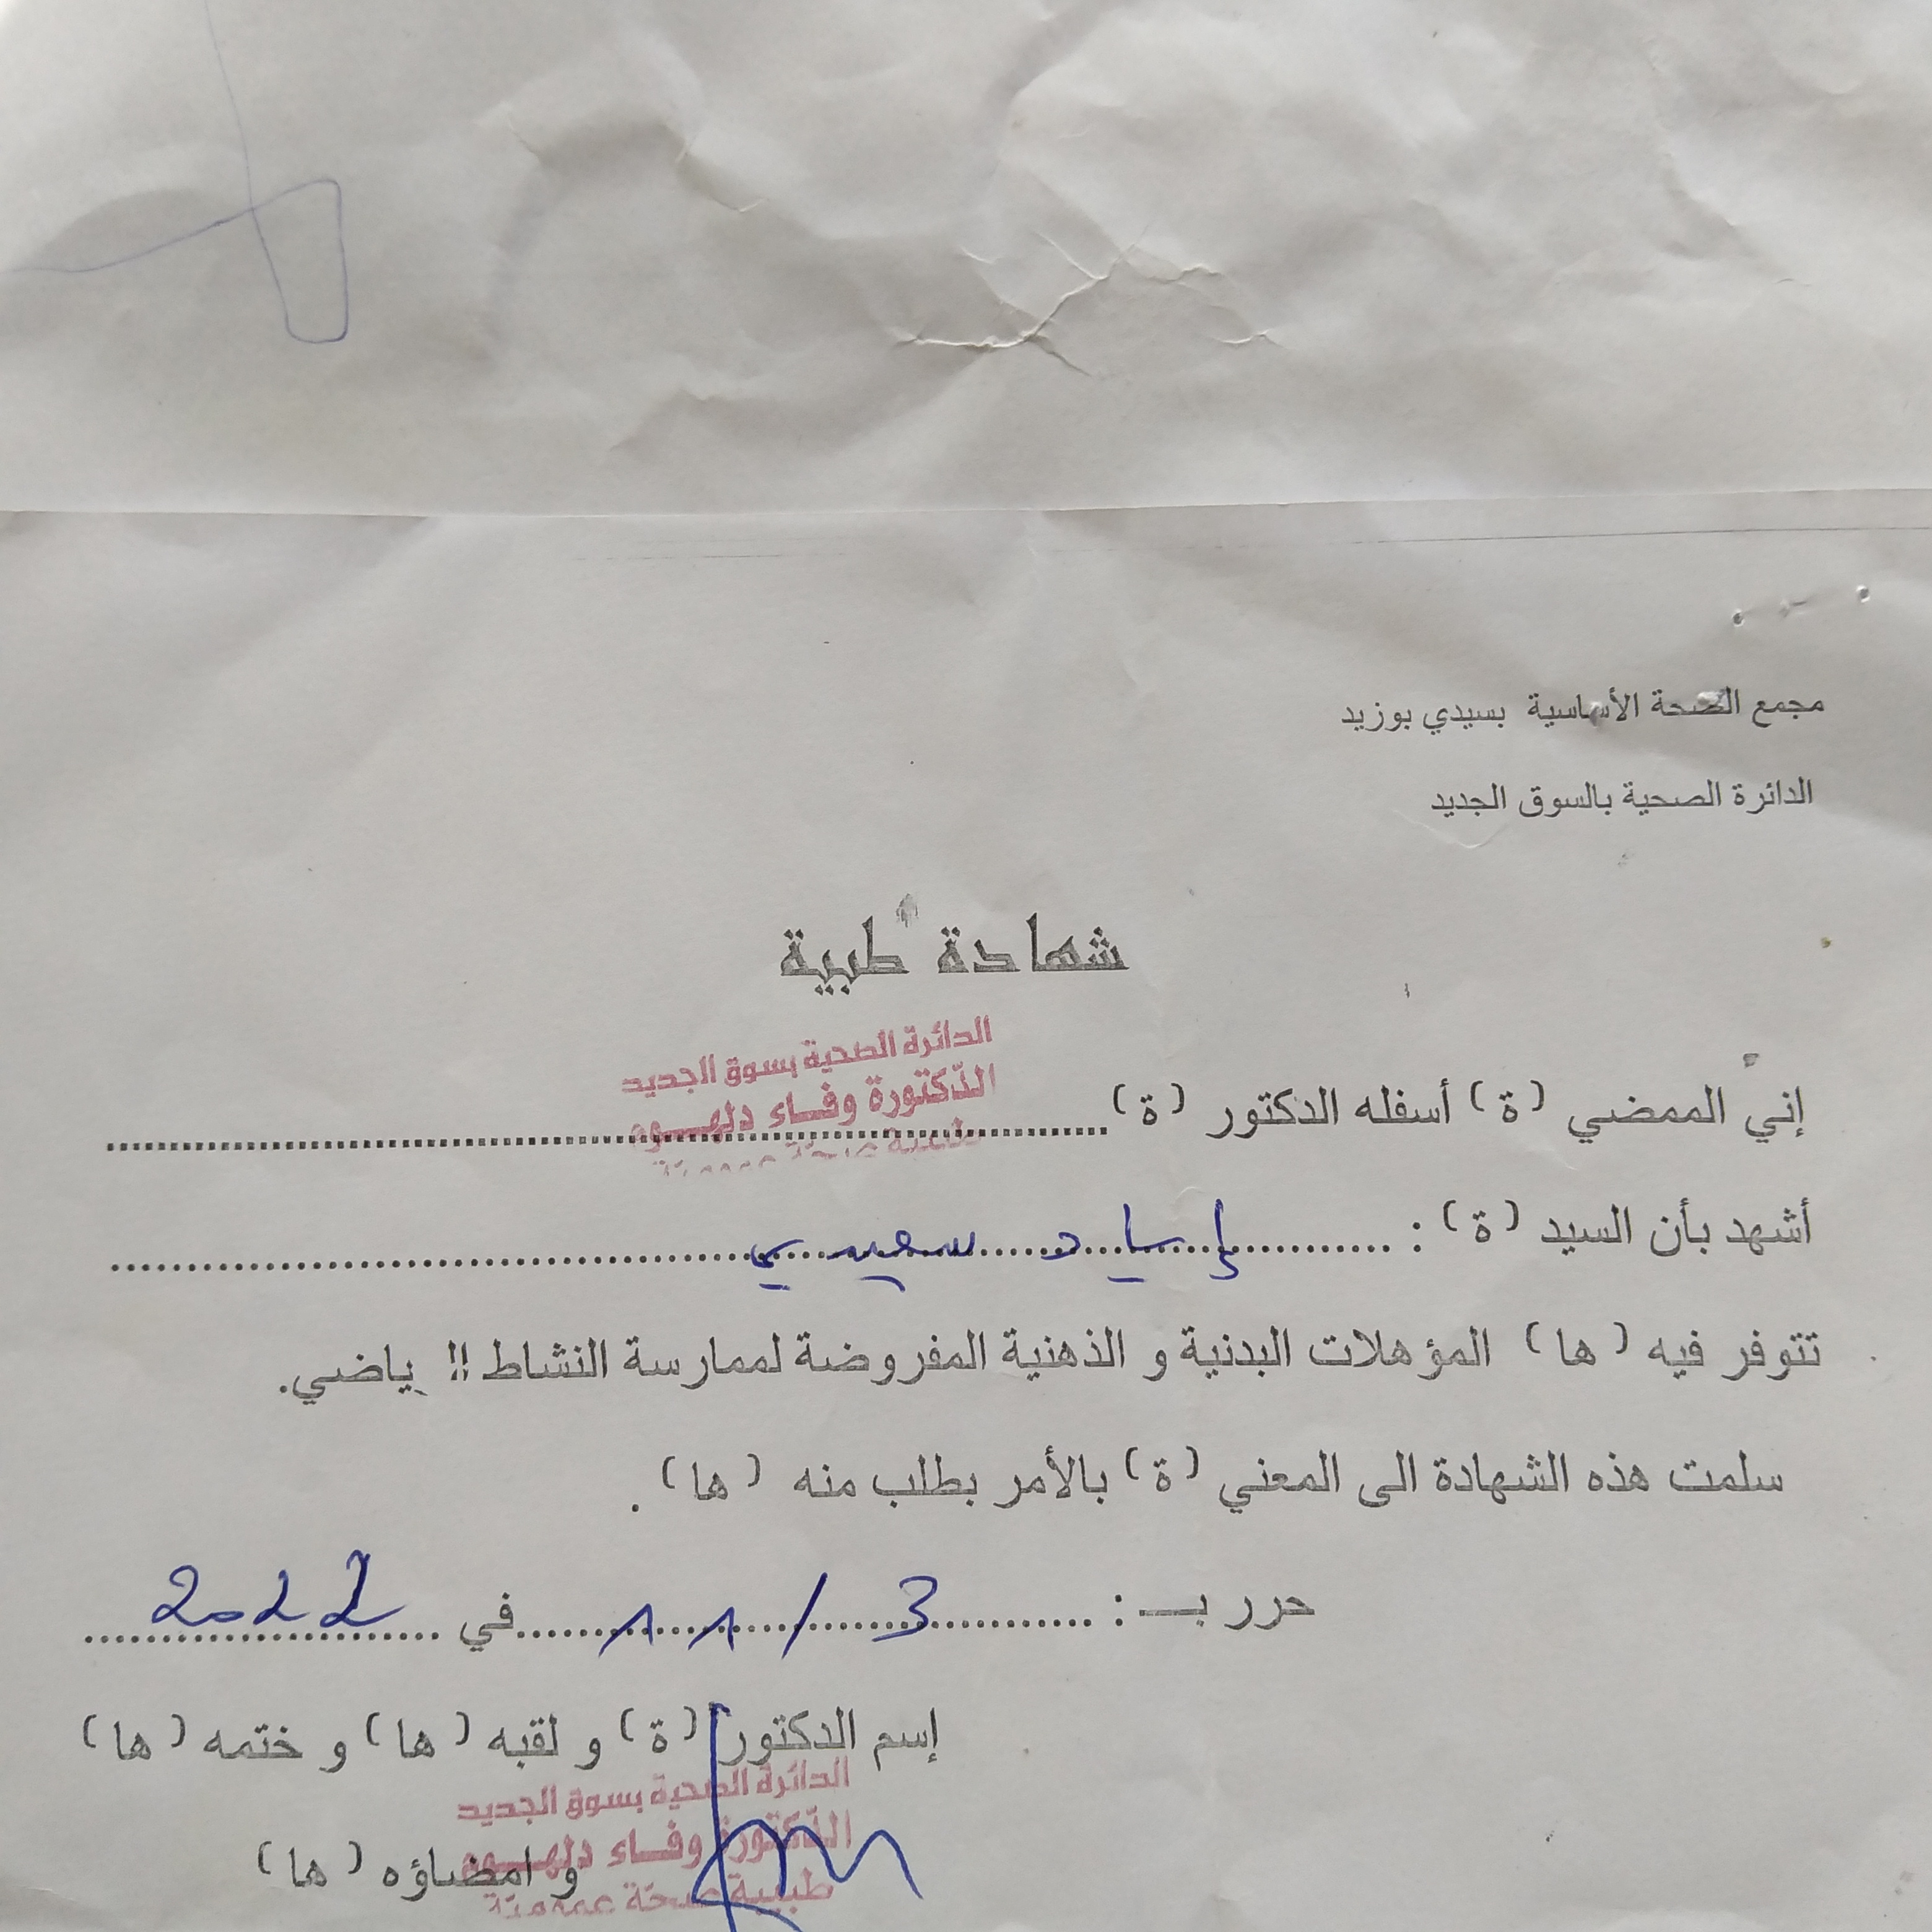 مجمع الصحة الأساسية بسيدي بوزيد
الدائرة الصحية بالسوق الجديد
شهادة طبية
الدائرة الصحية بسوق الجديد
الدّكتورة وفـاء دلهـوم
طبيبة صحة عمومية
إنيّ الممضي (ة) أسفله الدكتور (ة)
أشهد بأن السيد (ة) : إياد سعيدي
تتوفر فيه (ها) المؤهلات البدنية و الذهنية المفروضة لممارسة النشاط الرياضي.
سلمت هذه الشهادة الى المعني (ة) بالأمر بطلب منه (ها) .
حرر بـ : 3 / 11 في 2022
إسم الدكتور (ة) و لقبه (ها) و ختمه (ها)
الدائرة الصحية بسوق الجديد
الدّكتورة وفـاء دلهـوم
و امضاؤه (ها)
طبيبة صحة عمومية